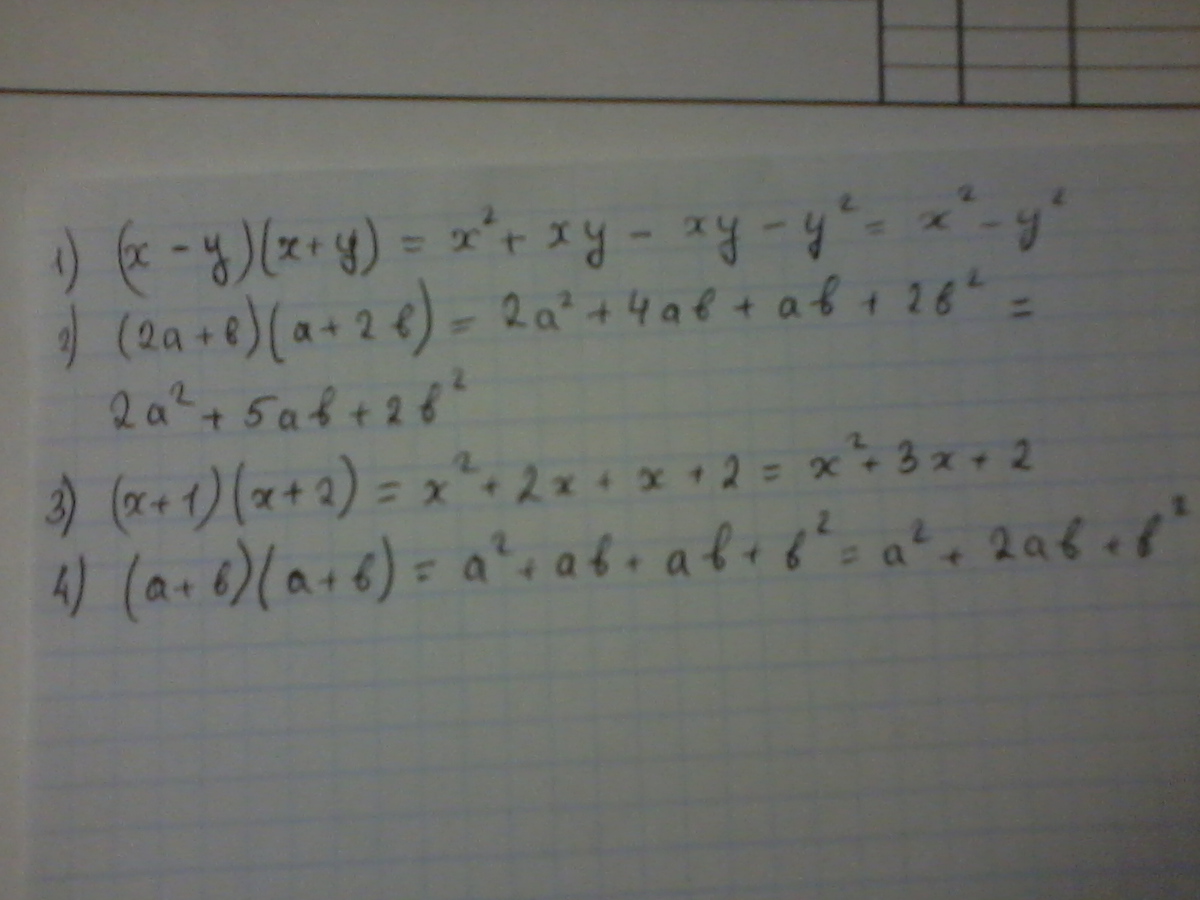 1) (x - y)(x + y) = x² + xy - xy - y² = x² - y²
2) (2a + b)(a + 2b) = 2a² + 4ab + ab + 2b² =
2a² + 5ab + 2b²
3) (x + 1)(x + 2) = x² + 2x + x + 2 = x² + 3x + 2
4) (a + b)(a + b) = a² + ab + ab + b² = a² + 2ab + b²